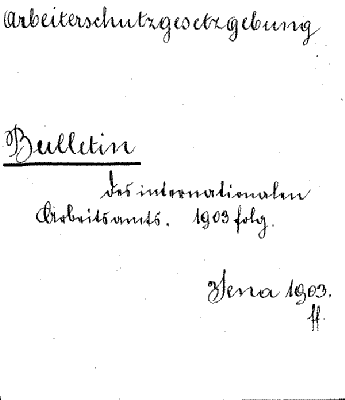 Arbeiterschutzgesetzgebung
Bulletin
des internationalen
Arbeitsamts. 1903 folg.
Jena 1903.
ff.